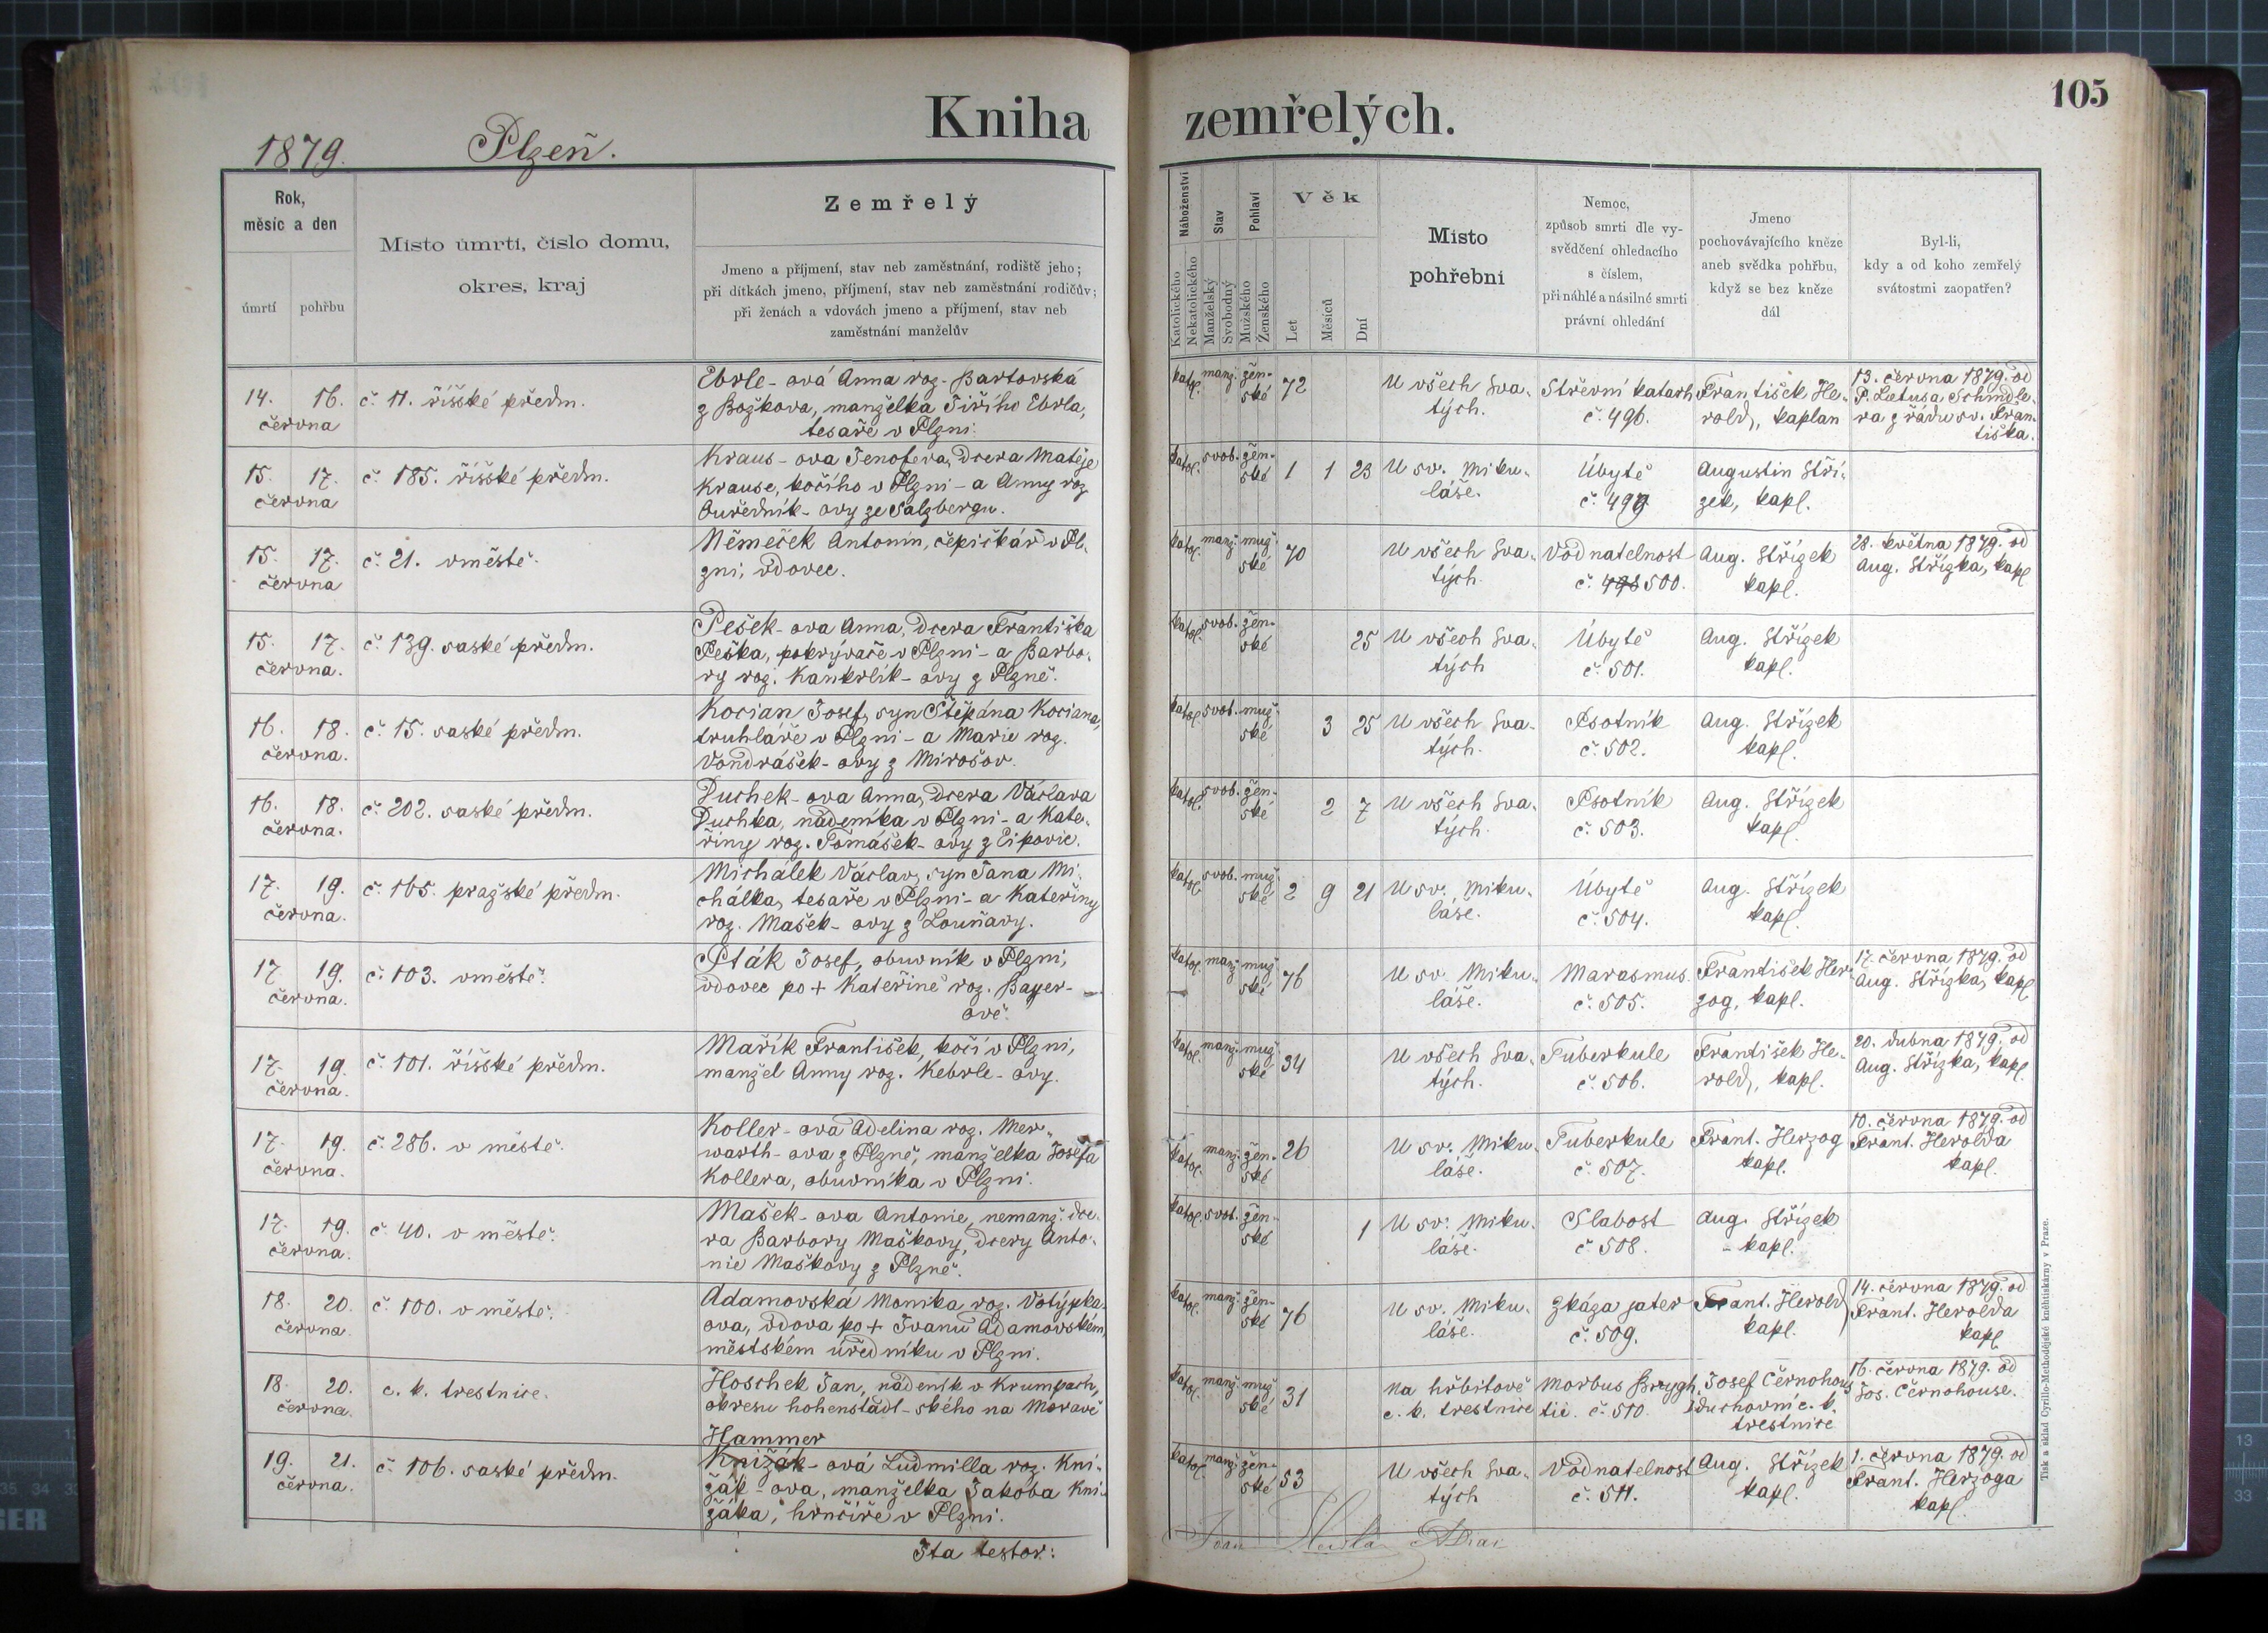 Kniha zemřelých.
105
1879. Plzeň.
Rok, měsíc a den
úmrtí
pohřbu
Místo úmrtí, číslo domu,
okres, kraj
Zemřelý
Jmeno a příjmení, stav neb zaměstnání, rodiště jeho;
při dítkách jmeno, příjmení, stav neb zaměstnání rodičův;
při ženách a vdovách jmeno a příjmení, stav neb
zaměstnání manželův
Náboženství
Katolického
Nekatolického
Stav
Manželský
Svobodný
Pohlaví
Mužského
Ženského
Věk
Let
Měsíců
Dní
Místo
pohřební
Nemoc,
způsob smrti dle vy-
svědčení ohledacího
s číslem,
při náhlé a násilné smrti
právní ohledání
Jmeno
pochovávajícího kněze
aneb svědka pohřbu,
když se bez kněze
dál
Byl-li,
kdy a od koho zemřelý
svátostmi zaopatřen?
14. 16.
června
č. 11. říšské předm.
Ebrle-ová Anna roz. Bartovská
z Božkova, manželka Jiřího Ebrla,
tesaře v Plzni.
katol. manž. žen-
ské 72
U všech Sva-
tých.
Střevní katarh
č. 496.
František He-
rold, kaplan
13. června 1879. od
P. Schmidle-
ra z řádu sv. Fran-
tiška.
15. 17.
června
č. 185. říšské předm.
Kraus-ova Jenofeva, dcera Matěje
Krause, kočího v Plzni-a Anny roz
Ouředník-ovy ze Salzbergu.
katol. svob. žen-
ské 1 1 23
U sv. Miku-
láše.
Úbytě
č. 499
Augustin Stří-
zek, kapl.
15. 17.
června
č. 21. vměstě.
Němeček Antonín, čepičkář v Pl-
zni, vdovec.
katol. manž. muž-
ské 70
U všech Sva-
tých.
Vodnatelnost
č. 498 500.
Aug. Střízek
kapl.
28. května 1879. od
Aug. Střízka, kapl
15. 17.
června.
č. 139. saské předm.
Pešek-ova Anna, dcera Františka
Peška, pokrývače v Plzni-a Barbo-
ry roz. Kankrlík-ovy z Plzně.
katol. svob. žen-
ské 25
U všech Sva-
tých
Úbytě
č. 501.
Aug. Střízek
kapl.
16. 18.
června.
č. 15. saské předm.
Kocian Josef, syn Štěpána Kociana,
truhláře v Plzni-a Marie roz.
Vondrášek-ovy z Mirošov.
katol svob. muž-
ské 3 25
U všech Sva-
tých.
Psotník
č. 502.
Aug. Střízek
kapl.
16. 18.
června.
č. 202. saské předm.
Duchek-ova Anna, dcera Václava
Duchka, nádeníka v Plzni-a Kate-
řiny roz. Tomášek-ovy z Ejpovic.
katol. svob. žen-
ské 2 7
U všech Sva-
tých.
Psotník
č. 503.
Aug. Střízek
kapl.
17. 19.
června.
č. 165. pražské předm.
Michálek Václav, syn Jana Mi-
chálka, tesaře v Plzni-a Kateřiny
roz. Mašek-ovy z Louňavy.
katol. svob. muž-
ské 2 9 21
U sv. Miku-
láše.
Úbytě
č. 504.
Aug. Střízek
kapl.
17. 19.
června.
č. 103. vměstě.
Pták Josef, obuvník v Plzni,
vdovec po + Kateřině roz. Bayer-
ově.
katol. manž. muž-
ské 76
U sv. Miku-
láše.
Marasmus.
č. 505.
František Her-
zog, kapl.
17. června 1879. od
Aug. Střízka, kapl
17. 19.
června.
č. 101. říšské předm.
Mařík František, kočí v Plzni,
manžel Anny roz. Keberle-ovy.
katol. manž. muž-
ské 34
U všech Sva-
tých.
Tuberkule
č. 506.
František He-
rold, kapl.
20. dubna 1879. od
Aug. Střízka, kapl.
17. 19.
června.
č. 286. v městě.
Koller-ova Adelina roz. Mer-
warth-ova z Plzně, manželka Josefa
Kollera, obuvníka v Plzni.
katol. manž. žen-
ské 26
U sv. Miku-
láše.
Tuberkule
č. 507.
Frant. Herzog
kapl.
10. června 1879. od
Frant. Herolda
kapl.
17. 19.
června.
č. 40. v městě.
Mašek-ova Antonie, nemanž. dce-
ra Barbory Maškovy, dcery Anto-
nie Maškovy z Plzně.
katol. svob. žen-
ské 1
U sv. Miku-
láše.
Slabost
č 508.
Aug. Střízek
kapl.
18. 20.
června.
č. 100. v městě.
Adamovská Monika roz. Votýpka-
ova, vdova po + Ivanu Adamovském,
městském úředníku v Plzni.
katol. manž. žen-
ské 76
U sv. Miku-
láše.
zkáza jater
č. 509.
Frant. Herold
kapl.
14. června 1879. od
Frant. Herolda
kapl
18. 20.
června.
c. k. trestnice.
Hoschek Jan, nádeník v Krumpach,
okresu hohenstadt-ského na Moravě
katol. manž. muž-
ské 31
na hřbitově
c. k. trestnice
Morbus Brygh-
tii. č. 510.
Josef Černohous
duchovní c. k.
trestnice
16. června 1879. od
Jos. Černohouse.
19. 21.
června.
č. 106. saské předm.
Hammer
Knižák-ová Ludmilla roz. Kni-
žák-ova, manželka Jakoba Kni-
žáka, hrnčíře v Plzni.
katol. manž. žen-
ské 53
U všech Sva-
tých
Vodnatelnost
č. 511.
Aug. Střízek
kapl.
1. června 1879. od
Frant. Herzoga
kapl.
Ita testor:
Tisk a sklad Cyrillo-Methodějské kněhtiskárny v Praze.